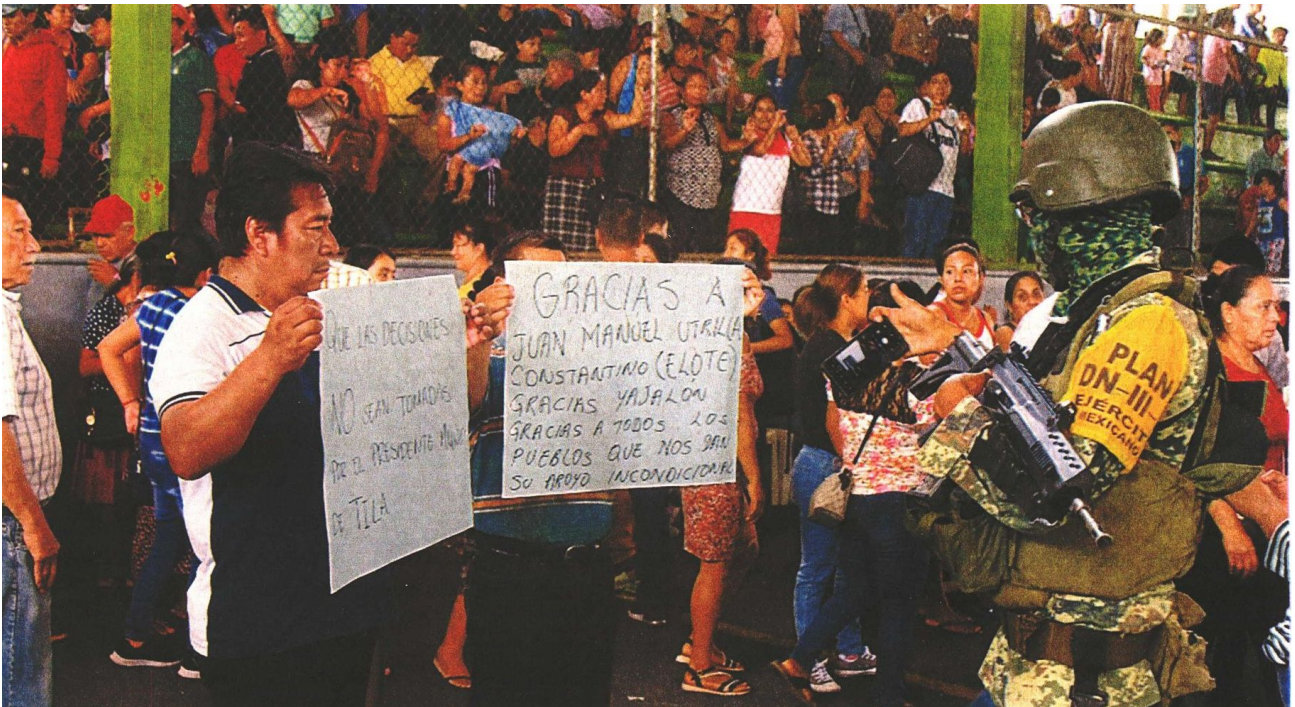 QUE LAS DECISIONES
NO SEAN TOMADAS
POR EL PRESIDENTE
DE TILA
GRACIAS A
JUAN MANUEL UTRILLA
CONSTANTINO (ELOTE)
GRACIAS YAJALON
GRACIAS A TODOS LOS
PUEBLOS QUE NOS DAN
SU APOYO INCONDICIONAL
PLAN
DN-III-
EJÉRCIT
MEXICANO